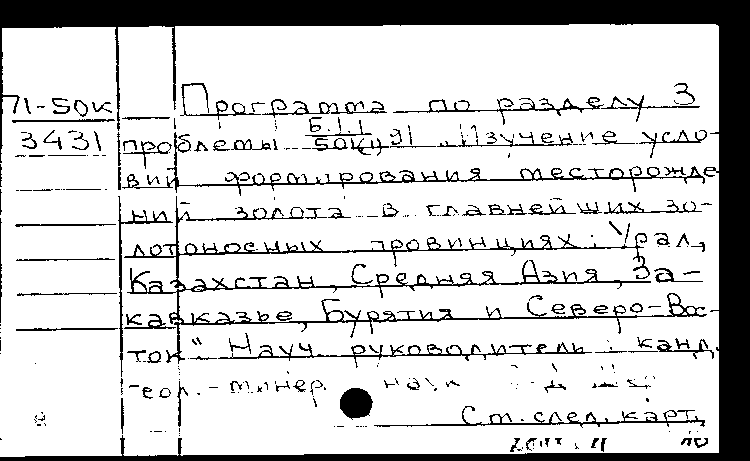 71-50к Программа по разделу 3
3431 проблемы Б.1.1 50кц 91 „Изучение усло-
вий формирования месторожде
ний золота в главнейших зо-
лотоносных провинциях: Урал,
Казахстан, Средняя Азия, За-
кавказье, Бурятия и Северо-Вос-
ток". Науч. руководитель: канд.
геол.-минер. наук
См. след. карт.